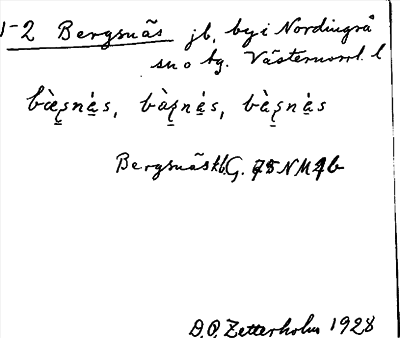 1-2 Bergsnäs jb, by i Nordingrå
sn o tg. Västernorrl. l
bæ̀s̨nás, bàs̨nás, bæ̀s̨nás
Bergsnäs kb. G. 75 NM 4b
D.O. Zetterholm 1928